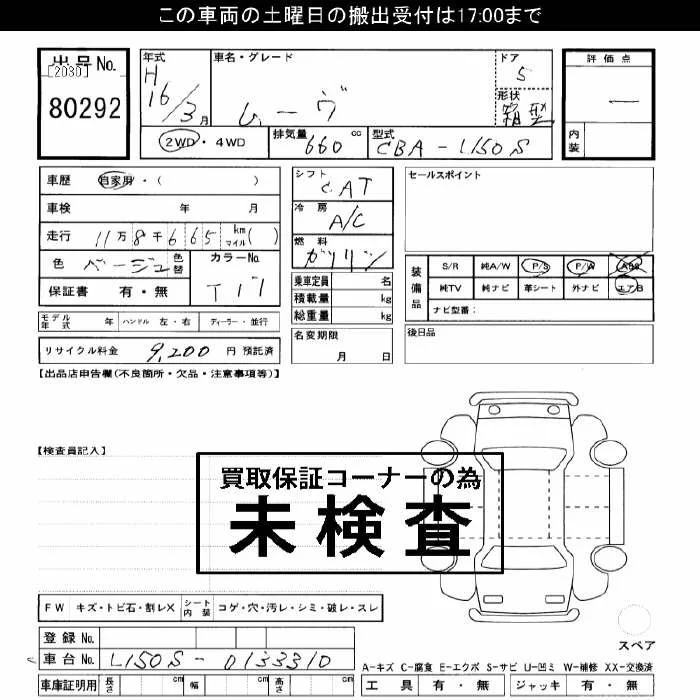 この車両の土曜日の搬出受付は17:00まで
出品No. [2030] 80292
年式 H 16/3月
車名・グレード ムーヴ
ドア 5
形状 箱型
評価点 —
内装
2WD・4WD
排気量 660 cc
型式 CBA-L150S
車歴 自家用・( )
車検 年 月
走行 11万8千665 km マイル( )
色 ベージュ 色替
カラーNo. T17
保証書 有・無
シフト CAT
冷房 A/C
燃料 ガソリン
乗車定員 名
積載量 kg
総重量 kg
セールスポイント
装備品 S/R 純A/W P/S P/W ABS
純TV 純ナビ 革シート 外ナビ エアB
ナビ型番:
モデル年式 年 ハンドル 左・右 ディーラー・並行
リサイクル料金 9,200 円 預託済
名変期限 月 日
後日品
【出品店申告欄(不良箇所・欠品・注意事項等)】
【検査員記入】
買取保証コーナーの為
未検査
FW キズ・トビ石・割レX シート内装 コゲ・穴・汚レ・シミ・破レ・スレ
登録No.
車台No. L150S-0133310
スペア
車庫証明用 長さ cm 幅 cm 高さ cm
A-キズ C-腐食 E-エクボ S-サビ U-凹ミ W-補修 XX-交換済
工具 有・無 ジャッキ 有・無